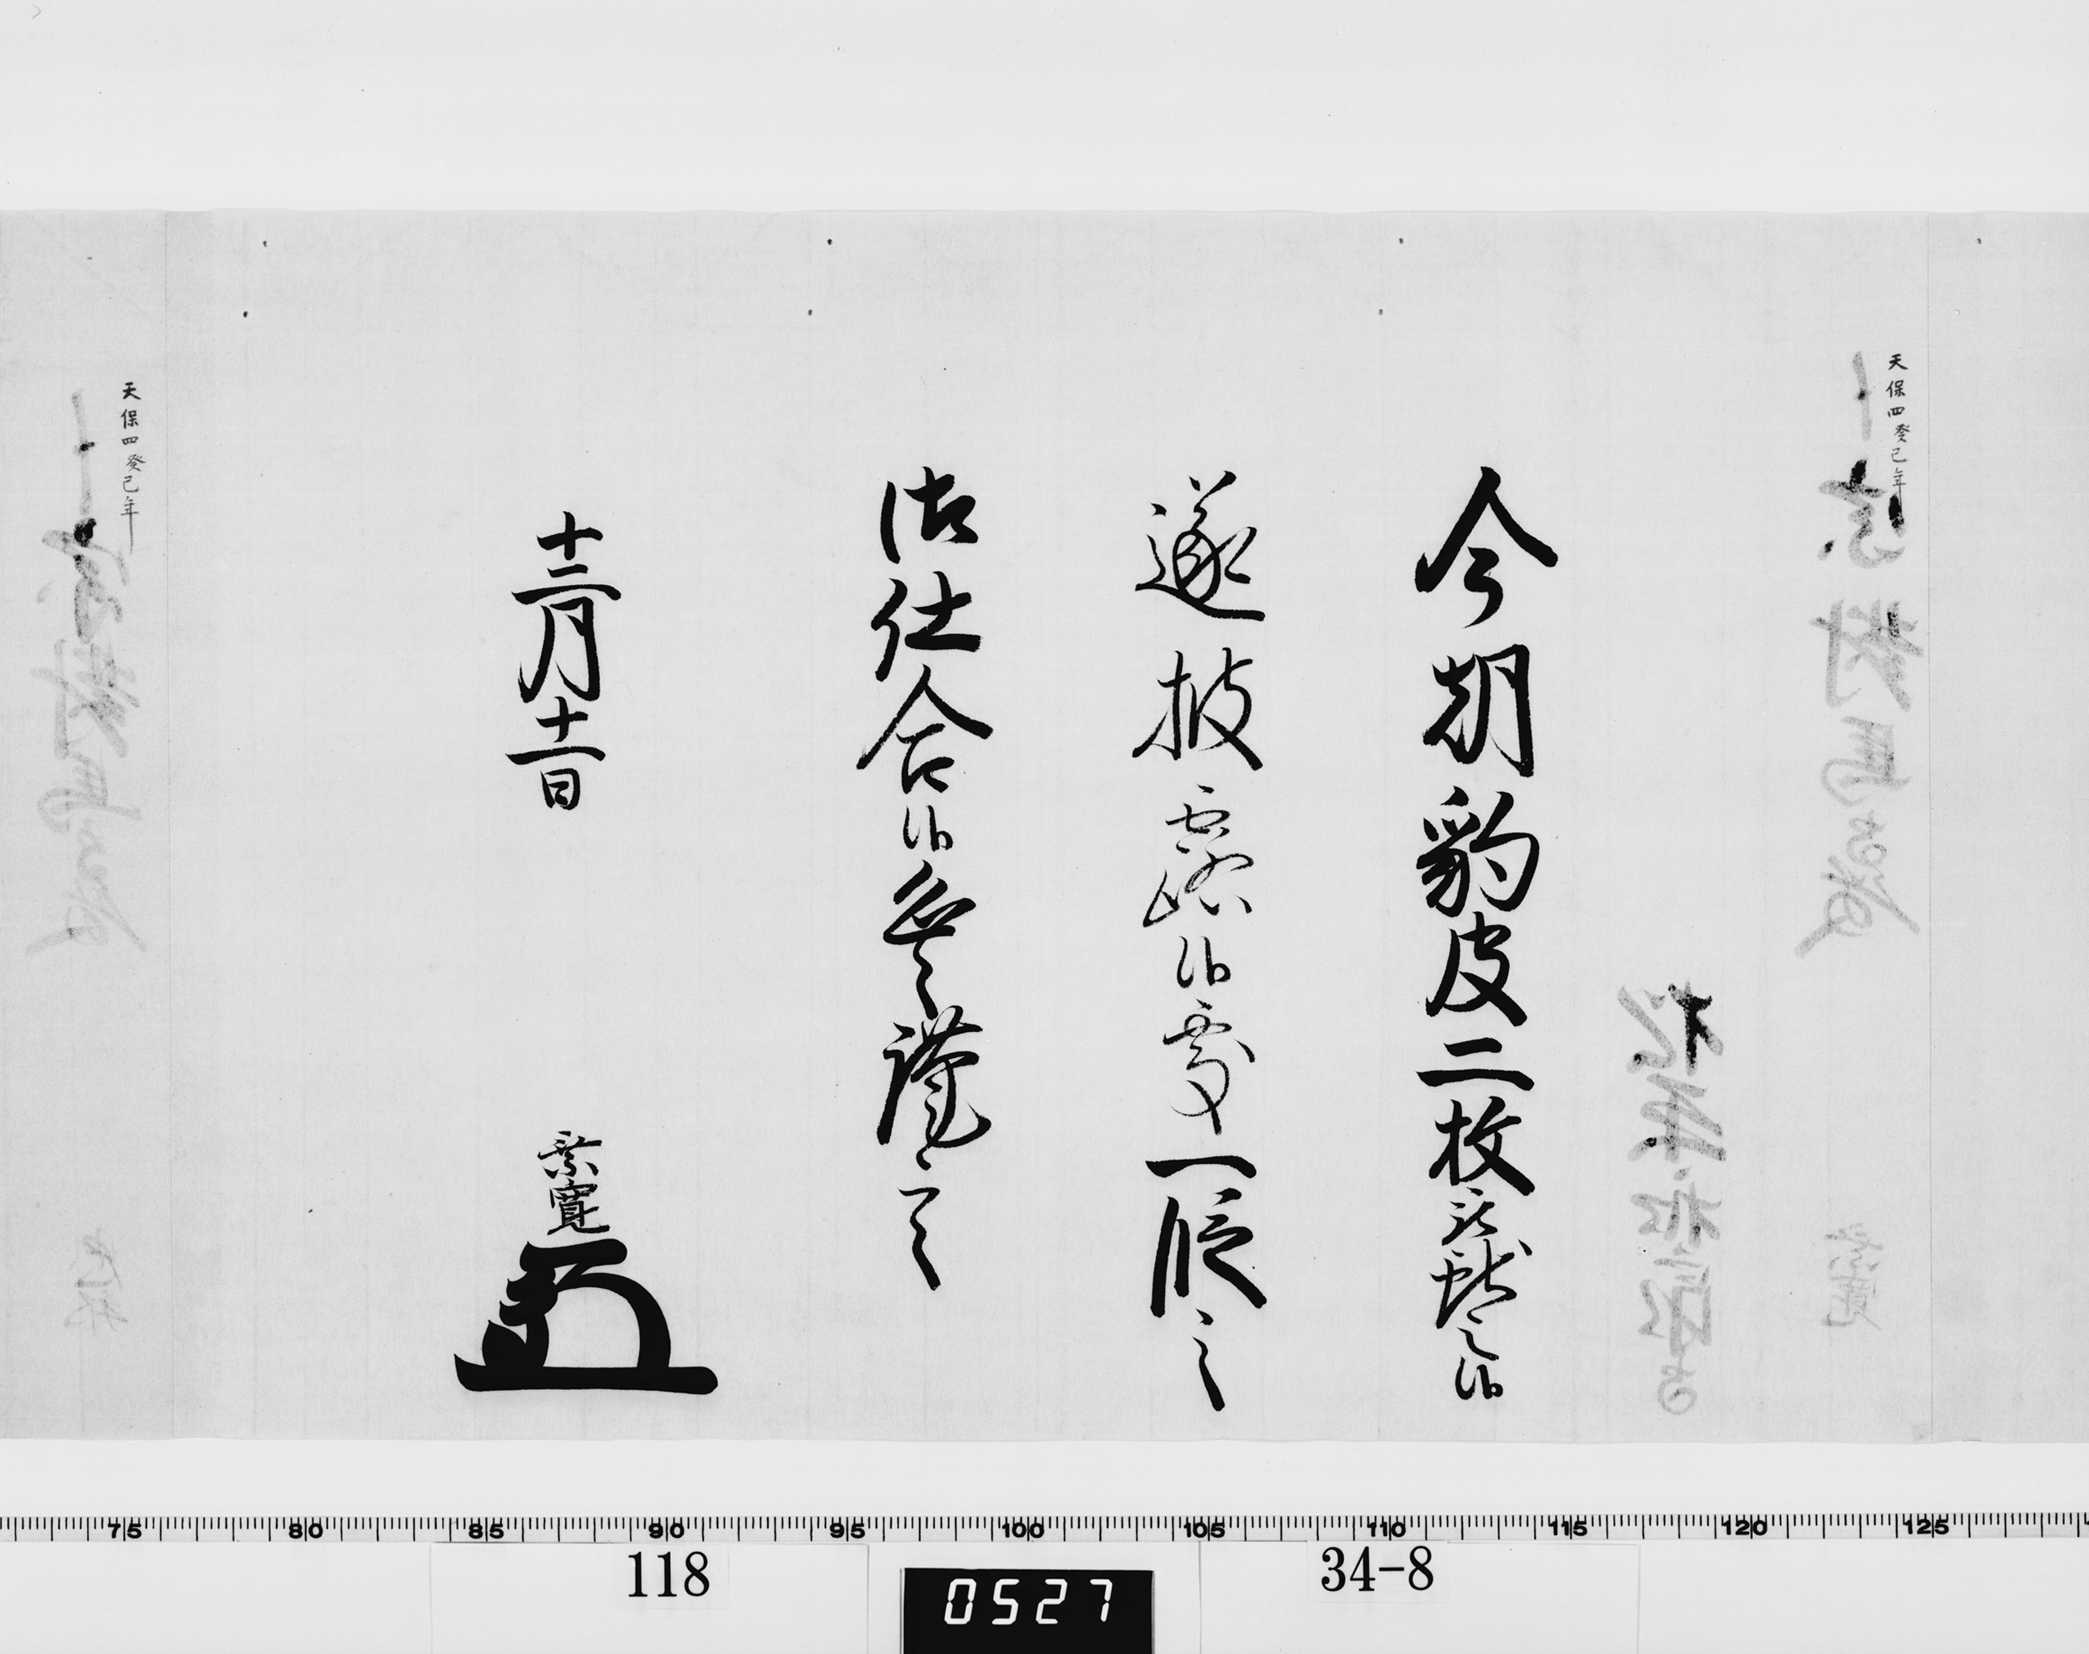 天保四癸巳年
今朝豹皮二枚被献之候
遂披露候処一段之
御仕合候恐々謹言
十二月十一日
宗寛
天保四癸巳年
75 80 85 90 95 100 105 110 115 120 125
118
0527
34-8